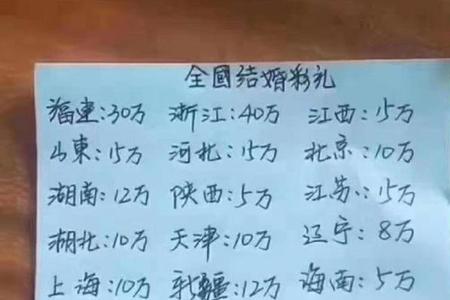 全國结婚彩礼
福建:30万 浙江:40万 江西:15万
山東:15万 河北:15万 北京:10万
湖南:12万 陕西:5万 江苏:15万
湖北:10万 天津:10万 辽宁:8万
上海:10万 新疆:12万 海南:5万